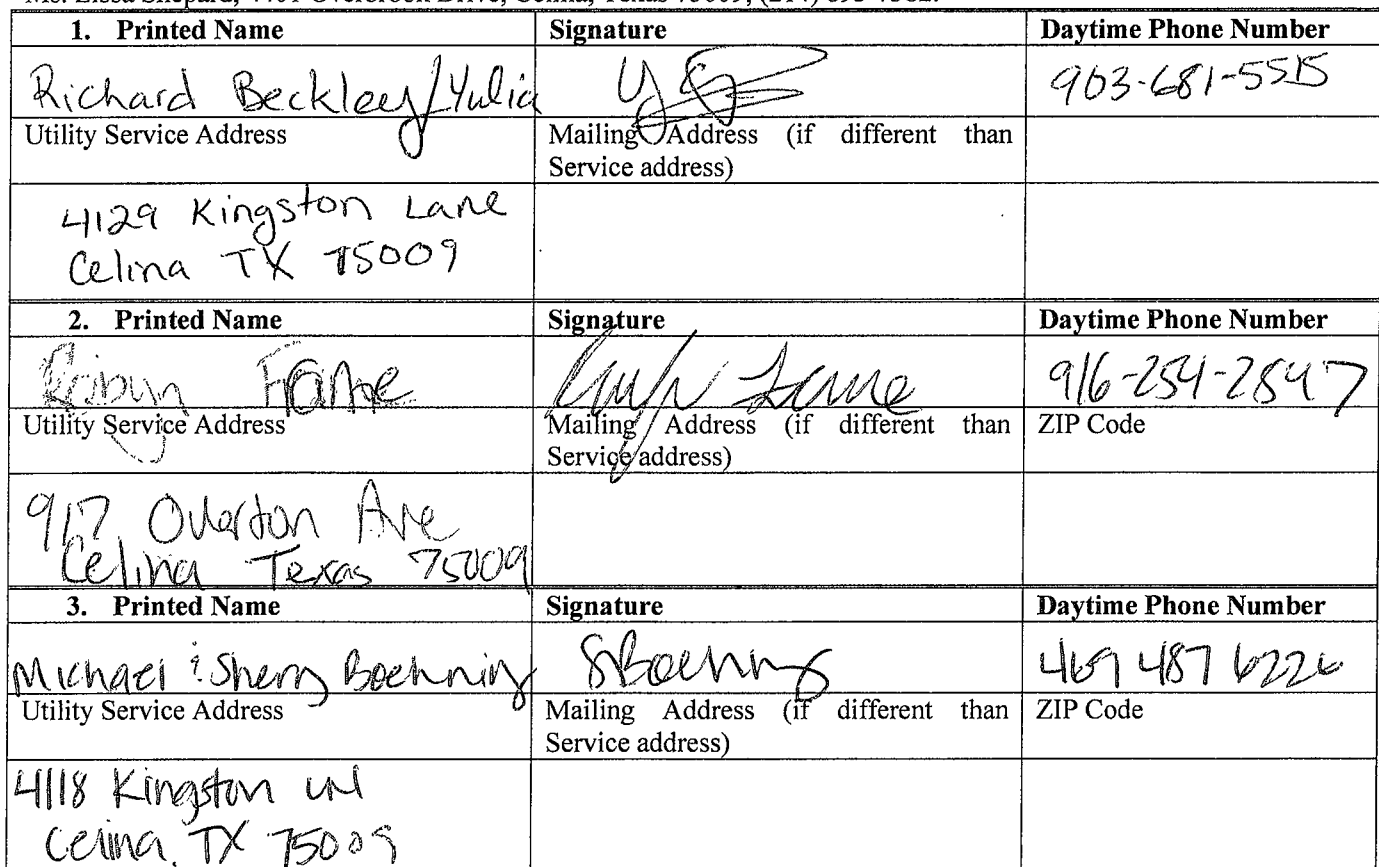 1. Printed Name Signature Daytime Phone Number
Richard Beckley/Yulia 903-681-5515
Utility Service Address Mailing Address (if different than
Service address)
4129 Kingston Lane
Celina TX 75009
2. Printed Name Signature Daytime Phone Number
Robyn Frame 916-254-2847
Utility Service Address Mailing Address (if different than ZIP Code
Service address)
917 Overton Ave
Celina Texas 75009
3. Printed Name Signature Daytime Phone Number
Michael & Sherry Boehning SBoehning 469 487 6226
Utility Service Address Mailing Address (if different than ZIP Code
Service address)
4118 Kingston LN
Celina, TX 75009